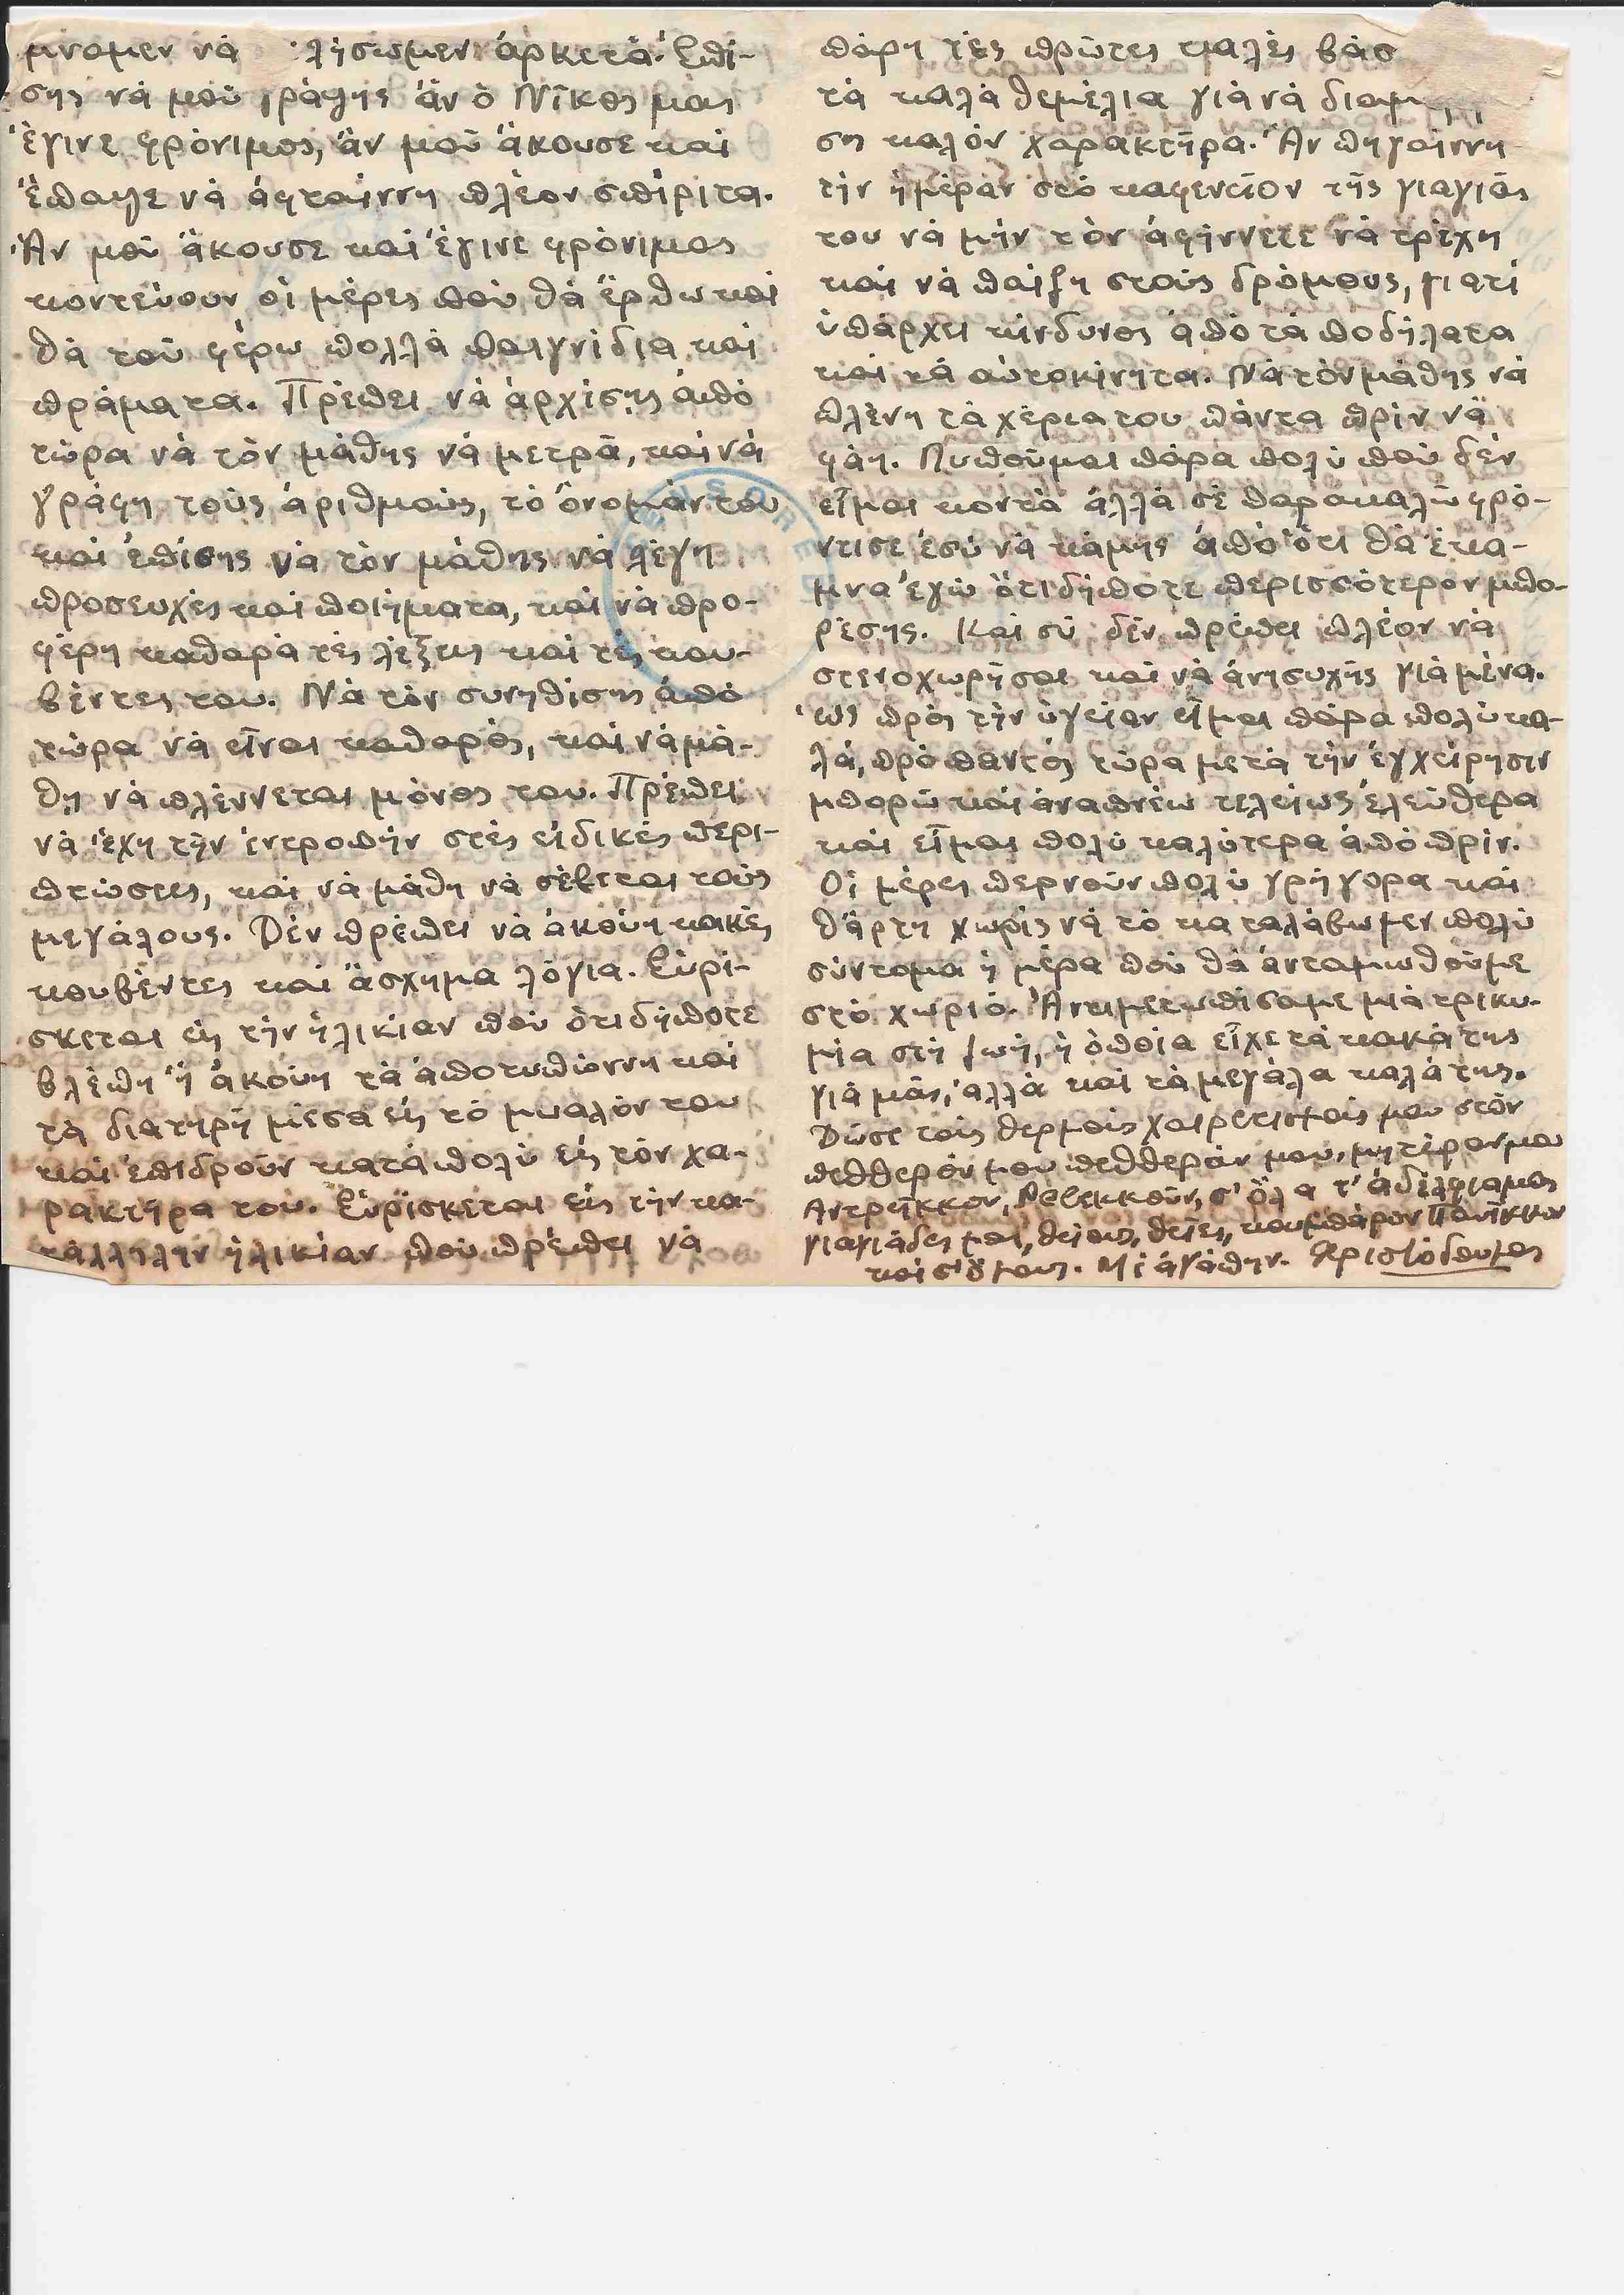 μνομεν νά λήσωμεν ἀρκετά. Ἐπί-
σης νά μοῦ γράψῃς ἄν ὁ Νῖκος μας
ἔγινε φρόνιμος, ἄν μοῦ ἄκουσε καί
ἔπαψε νά ἁφταίννῃ πλέον σπίριτα.
Ἄν μοῦ ἄκουσε καί ἔγινε φρόνιμος
κοντεύουν οἱ μέρες πού θά ἔρθω καί
θά τοῦ φέρω πολλά παιγνίδια καί
πράματα. Πρέπει νά ἀρχίσῃς ἀπό
τώρα νά τόν μάθῃς νά μετρᾶ, καί νά
γράφῃ τούς ἀριθμούς, τό ὄνομάν του
καί ἐπίσης νά τόν μάθῃς νά λέγῃ
προσευχές καί ποιήματα, καί νά προ-
φέρῃ καθαρά τές λέξεις καί τές κου-
βέντες του. Νά τόν συνηθίσῃς ἀπό
τώρα νά εἶναι καθαρός, καί νά μά-
θῃ νά πλέννεται μόνος του. Πρέπει
νά ἔχῃ τήν ἐντροπήν στές εἰδικές περι-
πτώσεις, καί νά μάθῃ νά σέβεται τούς
μεγάλους. Δέν πρέπει νά ἀκούῃ κακές
κουβέντες καί ἄσχημα λόγια. Εὑρί-
σκεται εἰς τήν ἡλικίαν πού ὁτιδήποτε
βλέπῃ ἤ ἀκούῃ τά ἀποτυπώννῃ καί
τά διατηρῆ μέσα εἰς τό μυαλόν του
καί ἐπιδροῦν κατά πολύ εἰς τόν χα-
ρακτῆρα του. Εὑρίσκεται εἰς τήν κα-
τάλληλην ἡλικίαν πού πρέπει νά
πάρῃ τές πρῶτες καλές βάσ
τά καλά θεμέλια γιά νά διαμ
σῃ καλόν χαρακτῆρα. Ἄν πηγαίννῃ
τήν ἡμέραν στό καφενεῖον τῆς γιαγιᾶς
του νά μήν τόν ἀφήννετε νά τρέχῃ
καί νά παίζῃ στούς δρόμους, γιατί
ὑπάρχει κίνδυνος ἀπό τά ποδήλατα
καί τά αὐτοκίνητα. Νά τόν μάθῃς νά
πλένῃ τά χέρια του πάντα πρίν νά
φάῃ. Λυποῦμαι πάρα πολύ πού δέν
εἶμαι κοντά ἀλλά σέ παρακαλῶ φρό-
ντισε ἐσύ νά κάμῃς ἀπό ὅτι θά ἔκα-
μνα ἐγώ ὁτιδήποτε περισσότερον μπο-
ρέσῃς. Καί σύ δέν πρέπει πλέον νά
στενοχωρῆσαι καί νά ἀνησυχῆς γιά μένα.
Ὡς πρός τήν ὑγείαν εἶμαι πάρα πολύ κα-
λά, πρό παντός τώρα μετά τήν ἐγχείρησιν
μπορῶ καί ἀναπνέω τελείως ἐλεύθερα
καί εἶμαι πολύ καλύτερα ἀπό πρίν.
Οἱ μέρες περνοῦν πολύ γρήγορα καί
θἄρτῃ χωρίς νά τό καταλάβωμεν πολύ
σύντομα ἡ μέρα πού θά ἀνταμωθοῦμε
στό χωριό. Ἀντιμετωπίσαμε μιά τρικυ-
μία στή ζωή, ἡ ὁποία εἶχε τά κακά της
γιά μᾶς, ἀλλά καί τά μεγάλα καλά της.
Δῶσε τούς θερμούς χαιρετισμούς μου στόν
πεθθερόν μου πεθθεράν μου, μητέραν μου
Ἀντρῆκκον, Ρεβεκκοῦν, σ' ὅλα τ' ἀδέλφια μας
γιαγιάδες μας, θείους, θεῖες, κουμπάρον Πανῖκκον
καί σ' ὅλους. Μέ ἀγάπην. Χριστόδουλος